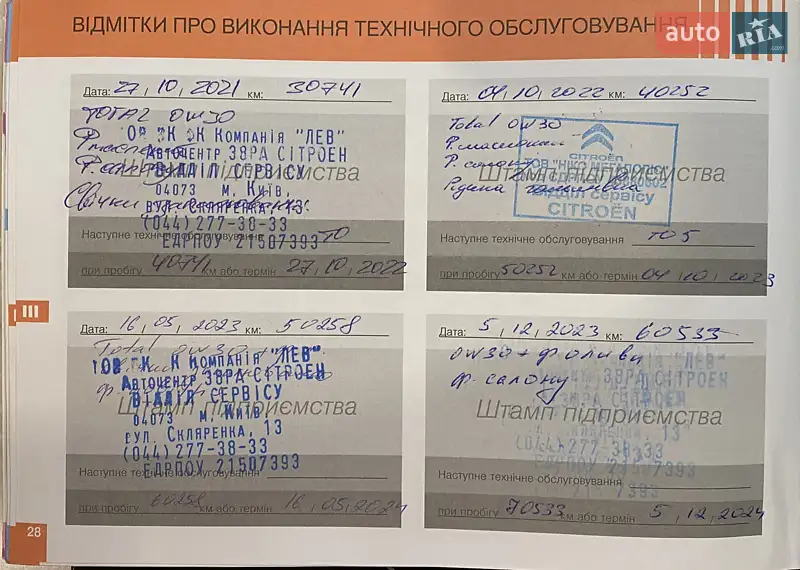 ВІДМІТКИ ПРО ВИКОНАННЯ ТЕХНІЧНОГО ОБСЛУГОВУВАННЯ
auto RIA.com
Дата: 27, 10, 2021 км: 30741
ТОТАЛ 0W30
КОМПАНІЯ "ЛЕВ"
АВТОЦЕНТР ЗВРА СІТРОЕН
ВІДДІЛ СЕРВІСУ
04073 м. КИЇВ,
ВУЛ. СКЛЯРЕНКА, 13
(044) 277-38-33
ЄДРПОУ 21507393
Штамп підприємства
Свічки
Наступне технічне обслуговування ТО
при пробігу 40741 км або термін 27, 10, 2022
Дата: 04, 10, 2022 км: 40252
Total 0W30
Р. масляний
Р. салон
Рідина гальмівна
CITROËN
ТОВ "НІКО МЕГАПОЛІС"
Відділ сервісу
CITROËN
Штамп підприємства
Наступне технічне обслуговування ТО 5
при пробігу 50252 км або термін 04, 10, 2023
Дата: 16, 05, 2023 км: 50258
Total 0W30
КОМПАНІЯ "ЛЕВ"
АВТОЦЕНТР ЗВРА СІТРОЕН
ВІДДІЛ СЕРВІСУ
04073 м. КИЇВ
ВУЛ. СКЛЯРЕНКА, 13
(044) 277-38-33
ЄДРПОУ 21507393
Штамп підприємства
Наступне технічне обслуговування
при пробігу 60258 км або термін 16, 05, 2024
Дата: 5, 12, 2023 км: 60533
0W30 + ф оливи
ф. салону
"ЛЕВ"
ЗВРА СІТРОЕН
Штамп підприємства
(044) 277-38-33
Наступне технічне обслуговування
при пробігу 70533 км або термін 5, 12, 2024
III
28